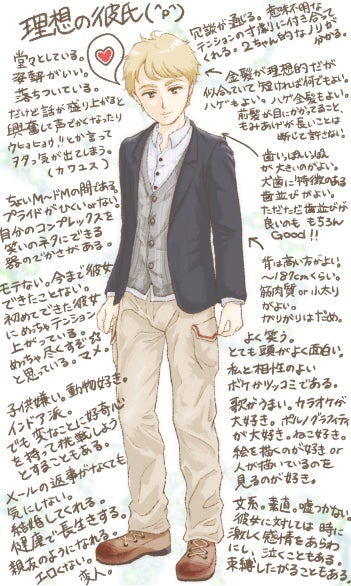 理想の彼氏(^p^)
堂々としている。
姿勢がいい。
落ちついている。
だけど話が盛り上がると
興奮して声でかくなったり
ウヒョヒョウ!!とか言って
ヲタっ気が出てしまう。
(カワユス)
ちょいM~ドMの間である。
プライドがひくい or ない。
自分のコンプレックスを
笑いのネタにできる
器のでかさがある。
モテない。今まで彼女
できたことない。
初めてできた彼女
にめっちゃテンション
上がっている。
めっちゃ尽くするぞ☆
と思っている。マメ。
子供嫌い。動物好き。
インドア派。
でも変なことに好奇心
を持って挑戦しよう
とすることもある。
メールの返事がなくても
気にしない。
結婚してくれる。
健康で長生きする。
親友のようになれる。
エロくない。恋人。
冗談が通じる。意味不明な
テンションの才膚りに付き合って
くれる。2ちゃん的なノリが
分かる。
金髪が理想的だが
似合っていて短ければ何でもよい。
ハゲでもよい。ハゲ金髪もよい。
前髪が目にかかってること、
もみあげが長いことは
断じて許さない。
歯いっぽんいっぽん
が大きいのがよい。
犬歯に特徴のある
歯並びがよい。
ただただ歯並びが
良いのももちろん
Good!!
背は高い方がよい。
~187cmくらい。
筋肉質or小太り
がよい。
がりがりはだめ。
よく笑う。
とても頭がよく面白い。
私と相性のよい
ボケかツッコミである。
歌がうまい。カラオケが
大好き。ポルノグラフィティ
が大好き。ねこ好き。
絵を描くのが好き or
人が描いているのを
見るのが好き。
文系。素直。嘘つかない。
彼女に対しては時に
激しく感情をあらわ
にし、泣くこともある。
束縛したがることもある。